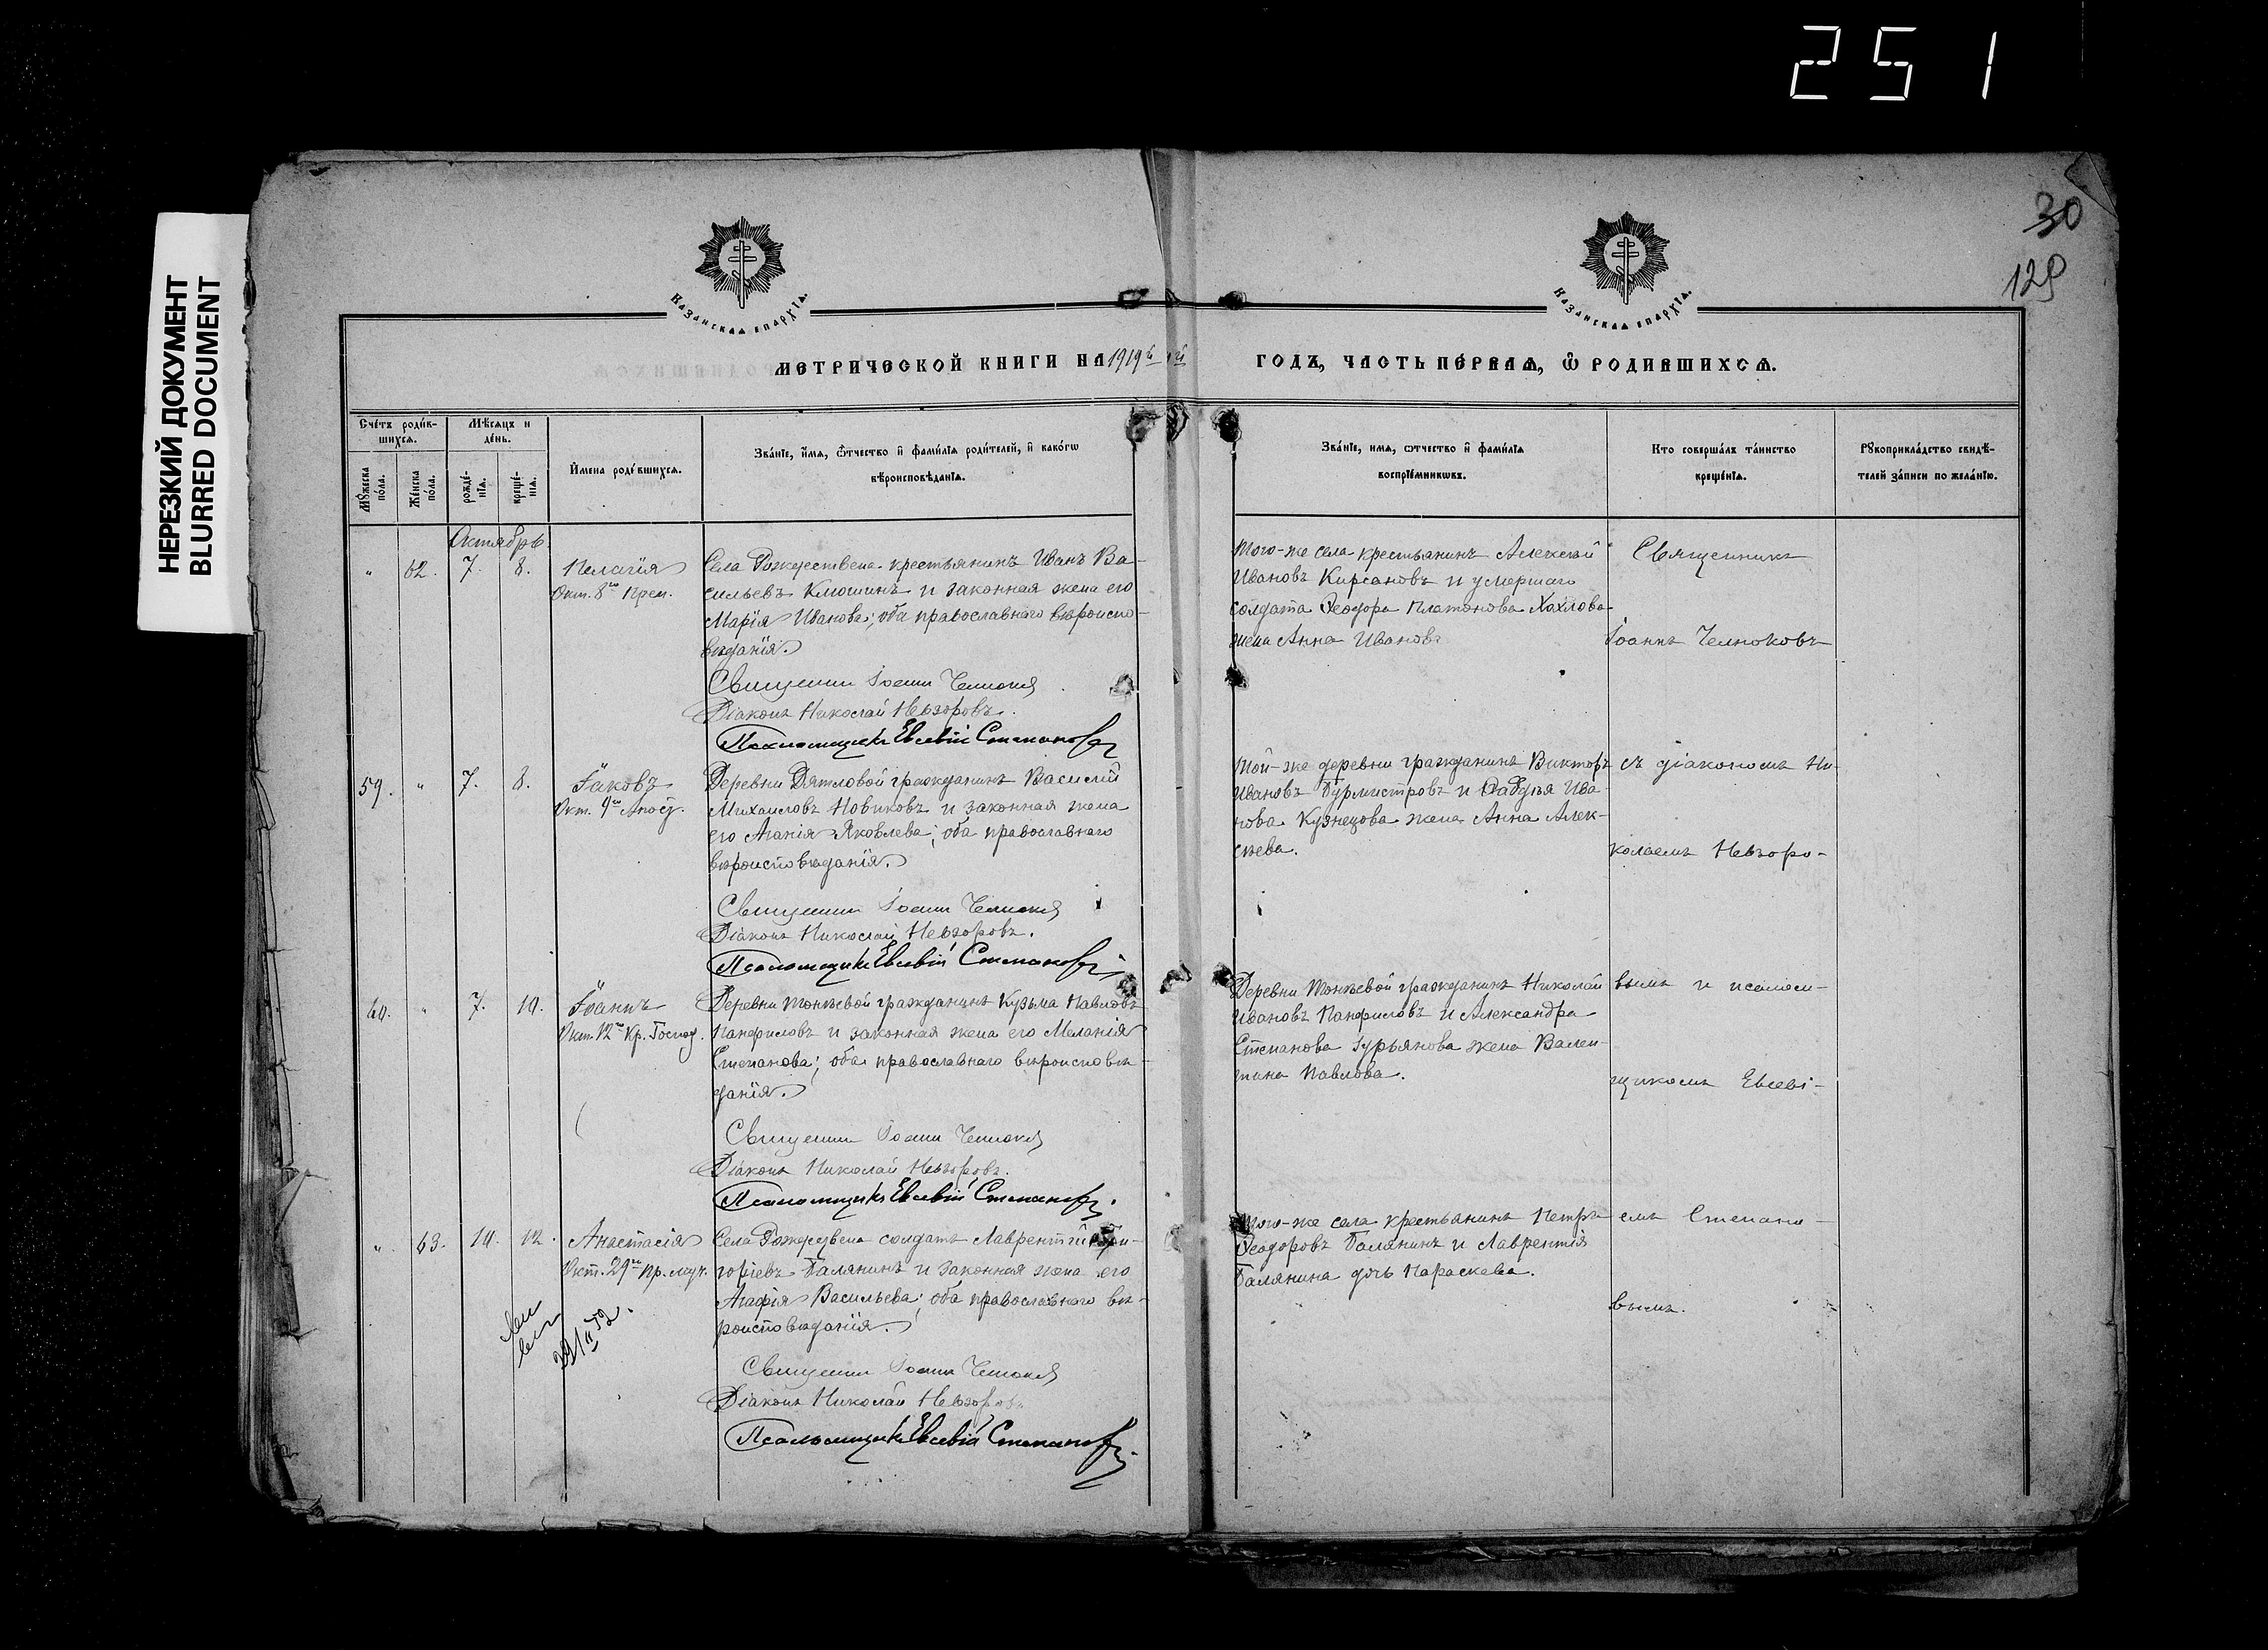 251
НЕРЕЗКИЙ ДОКУМЕНТ
BLURRED DOCUMENT
30
129
Казанская епархїѧ.
Казанская епархїѧ.
МЕТРИЧЕСКОЙ КНИГИ НА 1919й ГОДЪ, ЧАСТЬ ПЕ́РВАѦ, Ѽ РОДИВШИХСѦ.
Сче́тъ роди́в-
шихсѧ.
Мѣ́сѧцъ и
де́нь.
Мꙋ́жеска
по́ла.
Же́нска
по́ла.
рожде́-
нїѧ.
креще́-
нїѧ.
И҆мена роди́вшихсѧ.
Зва́нїе, и҆́мѧ, ѻ҆́тчество и҆ фами́лїѧ роди́телей, и҆ како́гѡ
вѣроисповѣ́данїѧ.
Зва́нїе, имѧ, ѻтчество и҆ фами́лїѧ
воспрїе́мникѡвъ.
Кто соверша́лъ та́инство
креще́нїѧ.
Рꙋкоприкла́дство свидѣ́-
телей за́писи по жела́нїю.
Октябрь
" 62. 7. 8.
Пелагія
Окт. 8го преп.
Села Рождествена крестьянинъ Иванъ Ва-
сильевъ Клюшинъ и законная жена его
Марія Иванова; оба православнаго вѣроиспо-
вѣданія.
Священник Іоанн Челноков
Діаконъ Николай Невзоровъ.
Псаломщикъ Евсевій Степановъ
Того-же села крестьянинъ Алексей
Ивановъ Кирсановъ и умершаго
солдата Ѳеодора Платонова Хохлова
жена Анна Иванова
Священникъ
Іоаннъ Челноковъ
59. " 7. 8.
Іаковъ
Окт. 9го Апост.
Деревни Дятловой гражданинъ Василій
Михаиловъ Новиковъ и законная жена
его Аганія Яковлева; оба православнаго
вѣроисповѣданія.
Священник Іоанн Челноков
Діаконъ Николай Невзоровъ.
Псаломщикъ Евсевій Степановъ
Той-же деревни гражданинъ Викторъ
Ивановъ Бурмистровъ и Савелья Ива-
нова Кузнецова жена Анна Алек-
сѣева.
съ діакономъ Ни-
колаемъ Невзоро-
60. " 7. 10.
Іоаннъ
Окт. 12го Кр. Господ.
Деревни Тонѣевой гражданинъ Кузьма Павловъ
Панфиловъ и законная жена его Меланія
Степанова; оба православнаго вѣроисповѣ-
данія.
Священник Іоанн Челноков
Діаконъ Николай Невзоровъ.
Псаломщикъ Евсевій Степановъ.
Деревни Тонѣевой гражданинъ Николай
Ивановъ Панфиловъ и Александра
Степанова Гурьянова жена Вален-
тина Павлова.
вымъ и псалом-
щикомъ Евсеві-
" 63. 10. 12.
Анастасія
Окт. 29го пр. муч.
Села Рождествена солдатъ Лаврентій Гри-
горіевъ Балянинъ и законная жена его
Агафія Васильева; оба православнаго вѣ-
роисповѣданія.
29/II 52.
Священник Іоанн Челноков
Діаконъ Николай Невзоровъ
Псаломщикъ Евсевій Степановъ.
Того-же села крестьянинъ Петръ
Ѳеодоровъ Балянинъ и Лаврентія
Балянина дочь Параскева.
емъ Степано-
вымъ.